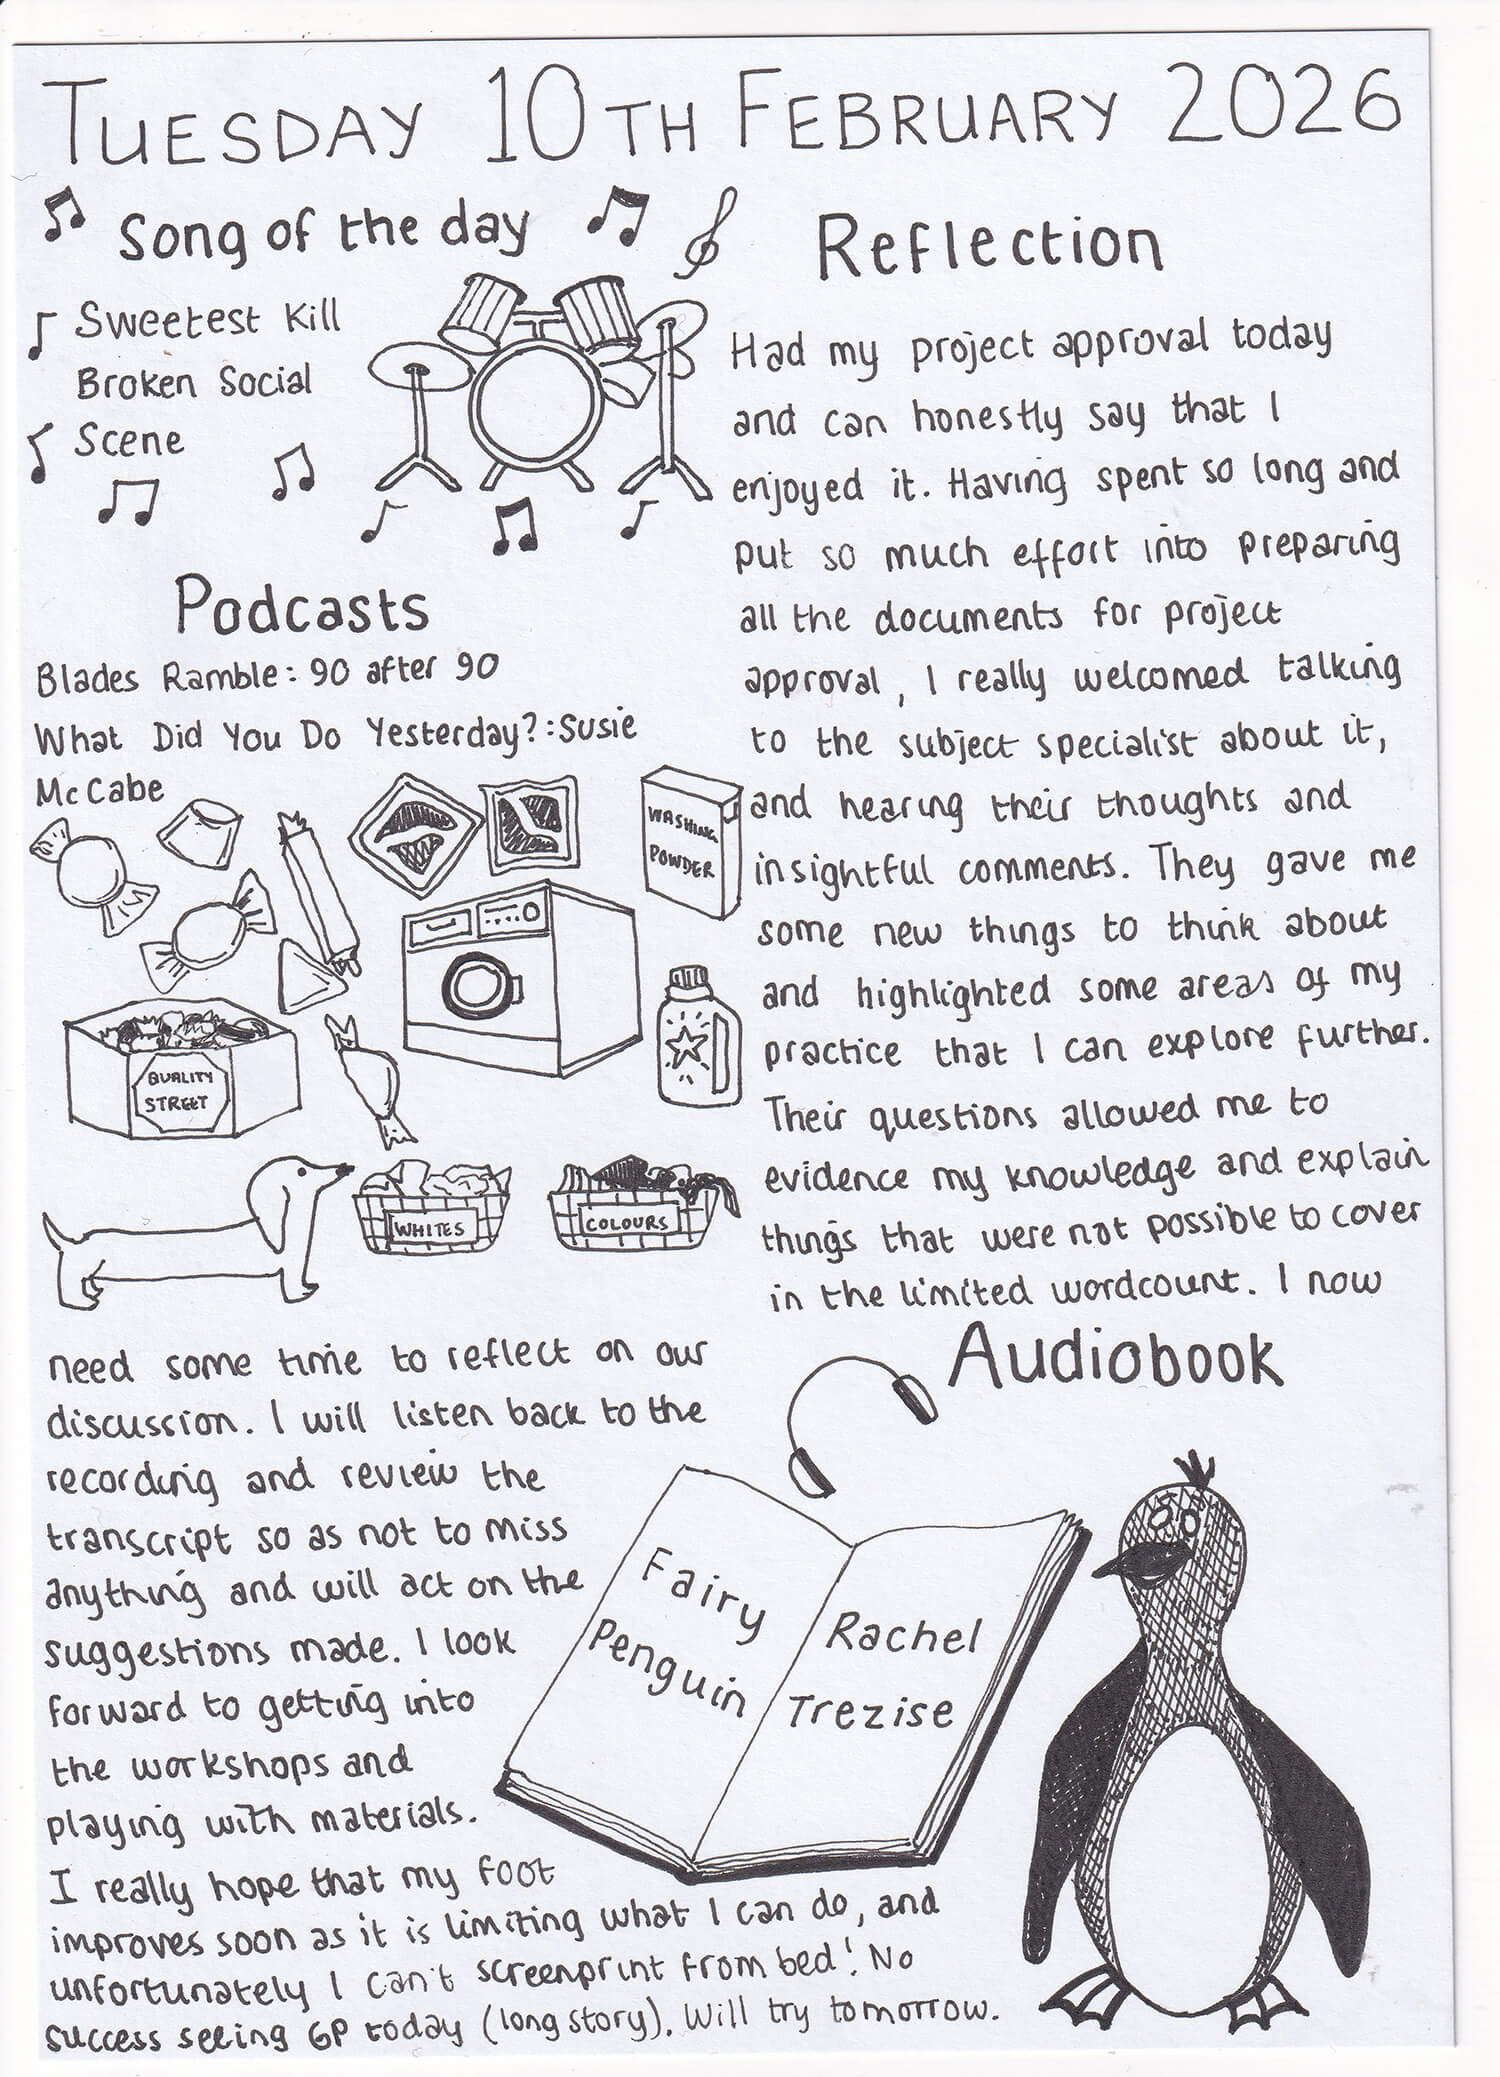 TUESDAY 10TH FEBRUARY 2026
Song of the day
Sweetest Kill
Broken Social
Scene
Podcasts
Blades Ramble: 90 after 90
What Did You Do Yesterday?: Susie
McCabe
WASHING
POWDER
QUALITY
STREET
WHITES
COLOURS
Reflection
Had my project approval today
and can honestly say that I
enjoyed it. Having spent so long and
put so much effort into preparing
all the documents for project
approval, I really welcomed talking
to the subject specialist about it,
and hearing their thoughts and
insightful comments. They gave me
some new things to think about
and highlighted some areas of my
practice that I can explore further.
Their questions allowed me to
evidence my knowledge and explain
things that were not possible to cover
in the limited wordcount. I now
need some time to reflect on our
discussion. I will listen back to the
recording and review the
transcript so as not to miss
anything and will act on the
suggestions made. I look
forward to getting into
the workshops and
playing with materials.
I really hope that my foot
improves soon as it is limiting what I can do, and
unfortunately I can't screenprint from bed! No
success seeing GP today (long story). Will try tomorrow.
Audiobook
Fairy
Penguin
Rachel
Trezise